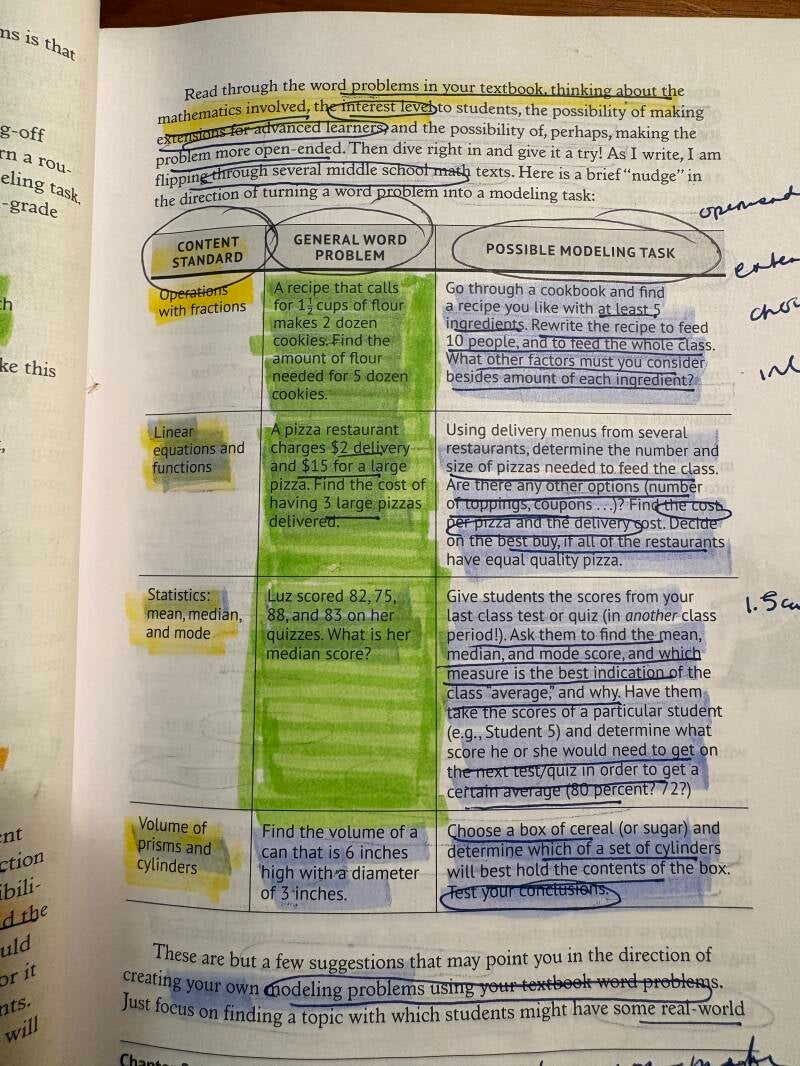 ns is that
g-off
rn a rou-
eling task.
-grade
h
ke this
ent
ction
ibili-
d the
uld
or it
nts.
will
Read through the word problems in your textbook, thinking about the
mathematics involved, the interest level to students, the possibility of making
extensions for advanced learners, and the possibility of, perhaps, making the
problem more open-ended. Then dive right in and give it a try! As I write, I am
flipping through several middle school math texts. Here is a brief “nudge” in
the direction of turning a word problem into a modeling task:
CONTENT
STANDARD
GENERAL WORD
PROBLEM
POSSIBLE MODELING TASK
Operations
with fractions
A recipe that calls
for 1½ cups of flour
makes 2 dozen
cookies. Find the
amount of flour
needed for 5 dozen
cookies.
Go through a cookbook and find
a recipe you like with at least 5
ingredients. Rewrite the recipe to feed
10 people, and to feed the whole class.
What other factors must you consider
besides amount of each ingredient?
Linear
equations and
functions
A pizza restaurant
charges $2 delivery
and $15 for a large
pizza. Find the cost of
having 3 large pizzas
delivered.
Using delivery menus from several
restaurants, determine the number and
size of pizzas needed to feed the class.
Are there any other options (number
of toppings, coupons . . .)? Find the cost
per pizza and the delivery cost. Decide
on the best buy, if all of the restaurants
have equal quality pizza.
Statistics:
mean, median,
and mode
Luz scored 82, 75,
88, and 83 on her
quizzes. What is her
median score?
Give students the scores from your
last class test or quiz (in another class
period!). Ask them to find the mean,
median, and mode score, and which
measure is the best indication of the
class “average,” and why. Have them
take the scores of a particular student
(e.g., Student 5) and determine what
score he or she would need to get on
the next test/quiz in order to get a
certain average (80 percent? 72?)
Volume of
prisms and
cylinders
Find the volume of a
can that is 6 inches
high with a diameter
of 3 inches.
Choose a box of cereal (or sugar) and
determine which of a set of cylinders
will best hold the contents of the box.
Test your conclusions.
These are but a few suggestions that may point you in the direction of
creating your own modeling problems using your textbook word problems.
Just focus on finding a topic with which students might have some real-world